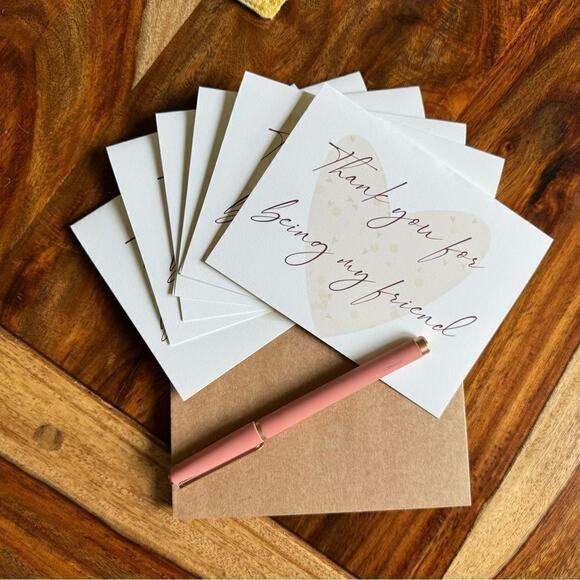 Thank you for
being my friend